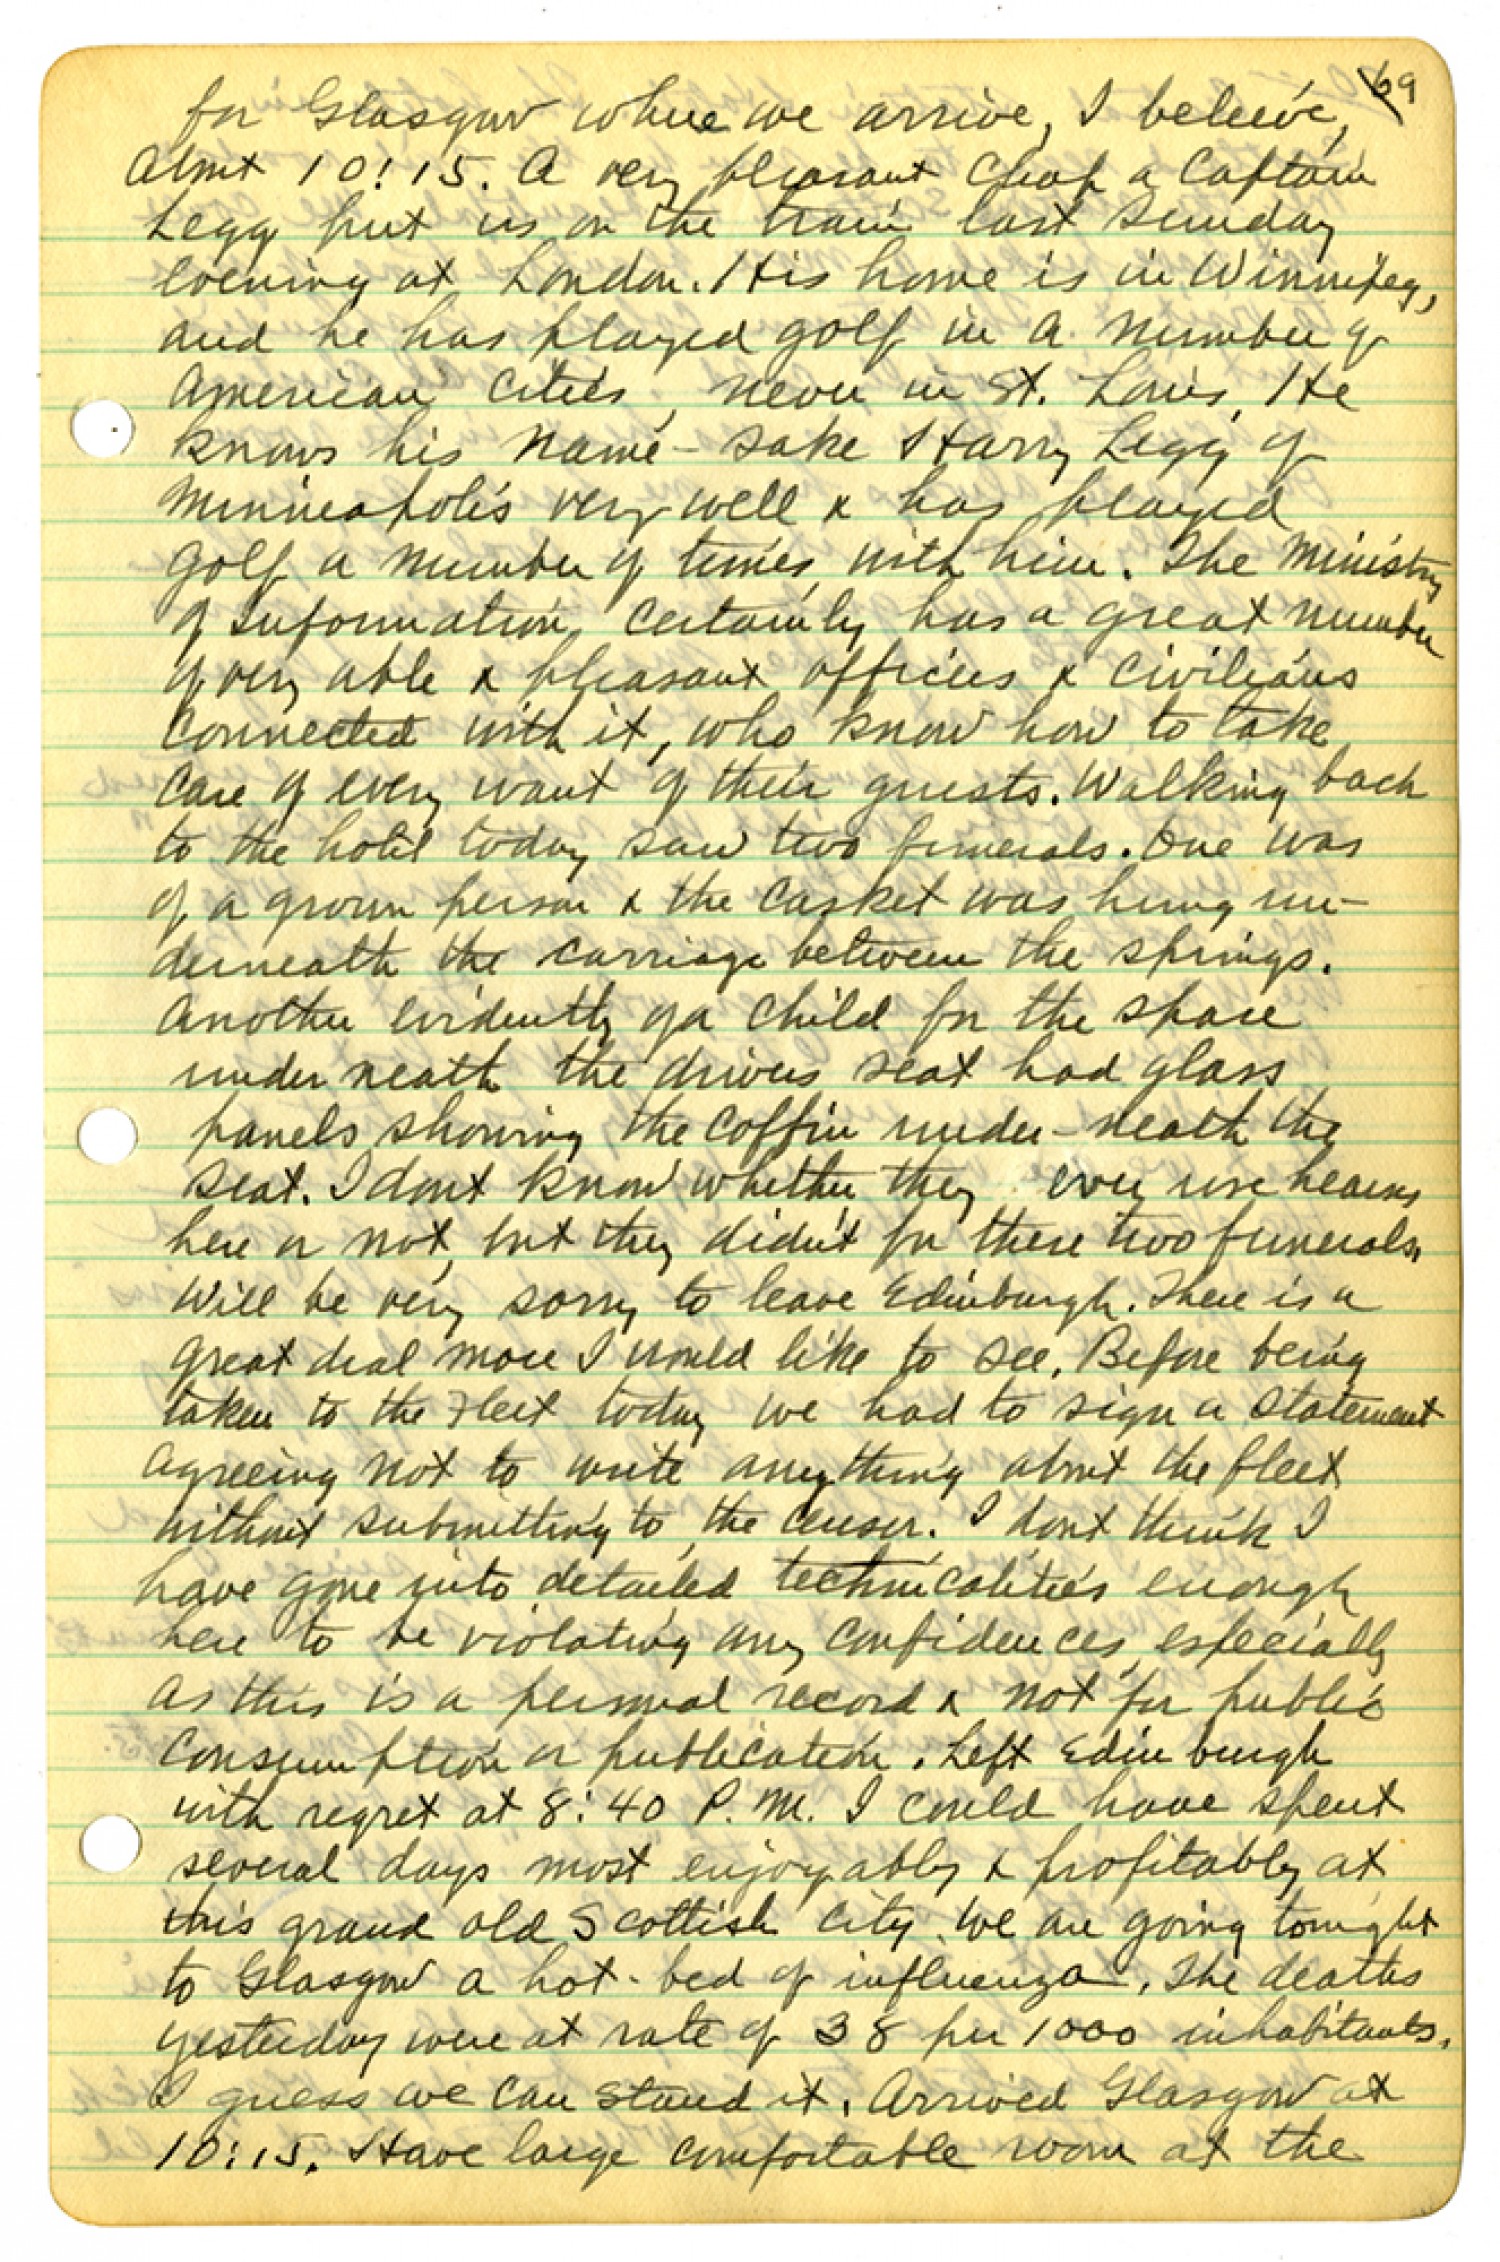 69
for Glasgow where we arrive, I beleive,
about 10:15. A very pleasant chap a Captain
Legg put us on the train last Sunday
evening at London. His home is in Winnipeg,
and he has played golf in a number of
American cities, never in St. Louis. He
knows his name-sake Harry Legg of
Minneapolis very well & has played
golf a number of times with him. The Ministry
of Information certainly has a great number
of very able & pleasant officers & civilians
connected with it, who know how to take
care of every want of their guests. Walking back
to the hotel today saw two funerals. One was
of a grown person & the casket was hung un-
derneath the carriage between the springs.
Another evidently of a child for the space
underneath the drivers seat had glass
panels showing the coffin under-neath the
seat. I dont know whether they ever use hearses
here or not, but they didn't for these two funerals.
Will be very sorry to leave Edinburgh. There is a
great deal more I would like to see. Before being
taken to the Fleet today we had to sign a statement
agreeing not to write anything about the fleet
without submitting to the censor. I dont think I
have gone into detailed technicalities enough
here to be violating any confidences, especially
as this is a personal record & not for public
consumption or publication. Left Edinburgh
with regret at 8:40 P.M. I could have spent
several days most enjoyably & profitably at
this grand old Scottish city. We are going tonight
to Glasgow a hot-bed of influenza. The deaths
yesterday were at rate of 38 per 1000 inhabitants.
I guess we can stand it. Arrived Glasgow at
10:15. Have large comfortable room at the